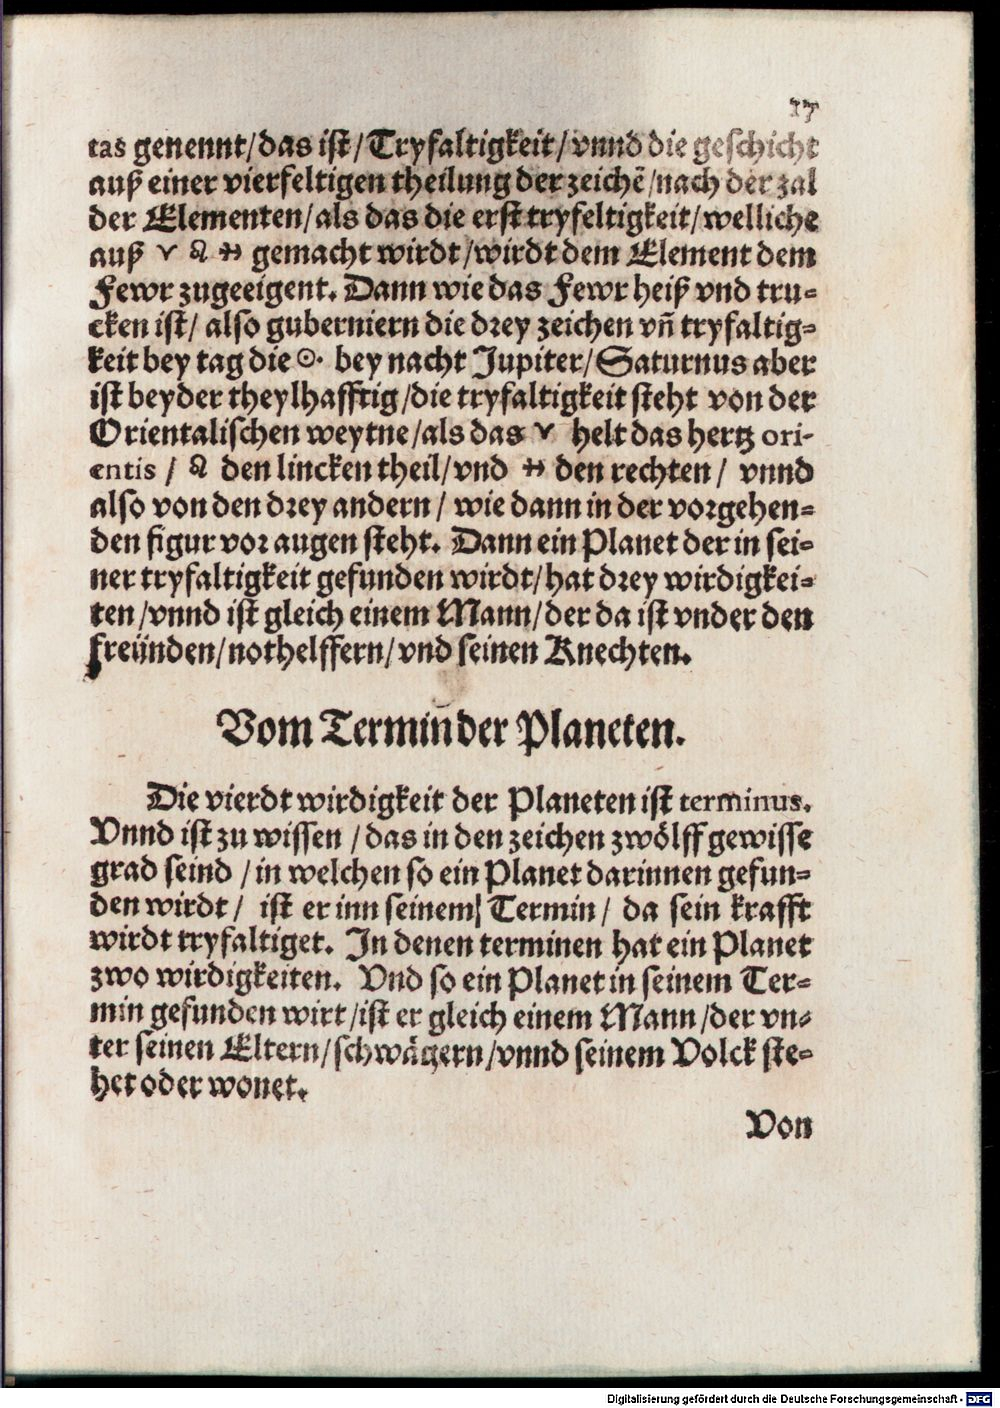 17
tas genennt/das ist/Tryfaltigkeit/vnnd die geschicht
auß einer vierfeltigen theilung der zeichẽ/nach der zal
der Elementen/als das die erst tryfeltigkeit/welliche
auß ♈ ♌ ♐ gemacht wirdt/wirdt dem Element dem
Fewr zugeeigent. Dann wie das Fewr heiß vnd tru-
cken ist/ also guberniern die drey zeichen vñ tryfaltig-
keit bey tag die ☉. bey nacht Jupiter/Saturnus aber
ist beyder theylhafftig/die tryfaltigkeit steht von der
Orientalischen weytne/als das ♈ helt das hertz ori-
entis / ♌ den lincken theil/vnd ♐ den rechten/ vnnd
also von den drey andern/ wie dann in der vorgehen-
den figur vor augen steht. Dann ein Planet der in sei-
ner tryfaltigkeit gefunden wirdt/hat drey wirdigkei-
ten/vnnd ist gleich einem Mann/der da ist vnder den
freünden/nothelffern/vnd seinen Knechten.
Vom Termin der Planeten.
Die vierdt wirdigkeit der Planeten ist terminus.
Vnnd ist zu wissen /das in den zeichen zwölff gewisse
grad seind /in welchen so ein Planet darinnen gefun-
den wirdt/ ist er inn seinem Termin/ da sein krafft
wirdt tryfaltiget. In denen terminen hat ein Planet
zwo wirdigkeiten. Vnd so ein Planet in seinem Ter-
min gefunden wirt/ist er gleich einem Mann/der vn-
ter seinen Eltern/schwägern/vnnd seinem Volck ste-
het oder wonet.
Von
Digitalisierung gefördert durch die Deutsche Forschungsgemeinschaft - DFG